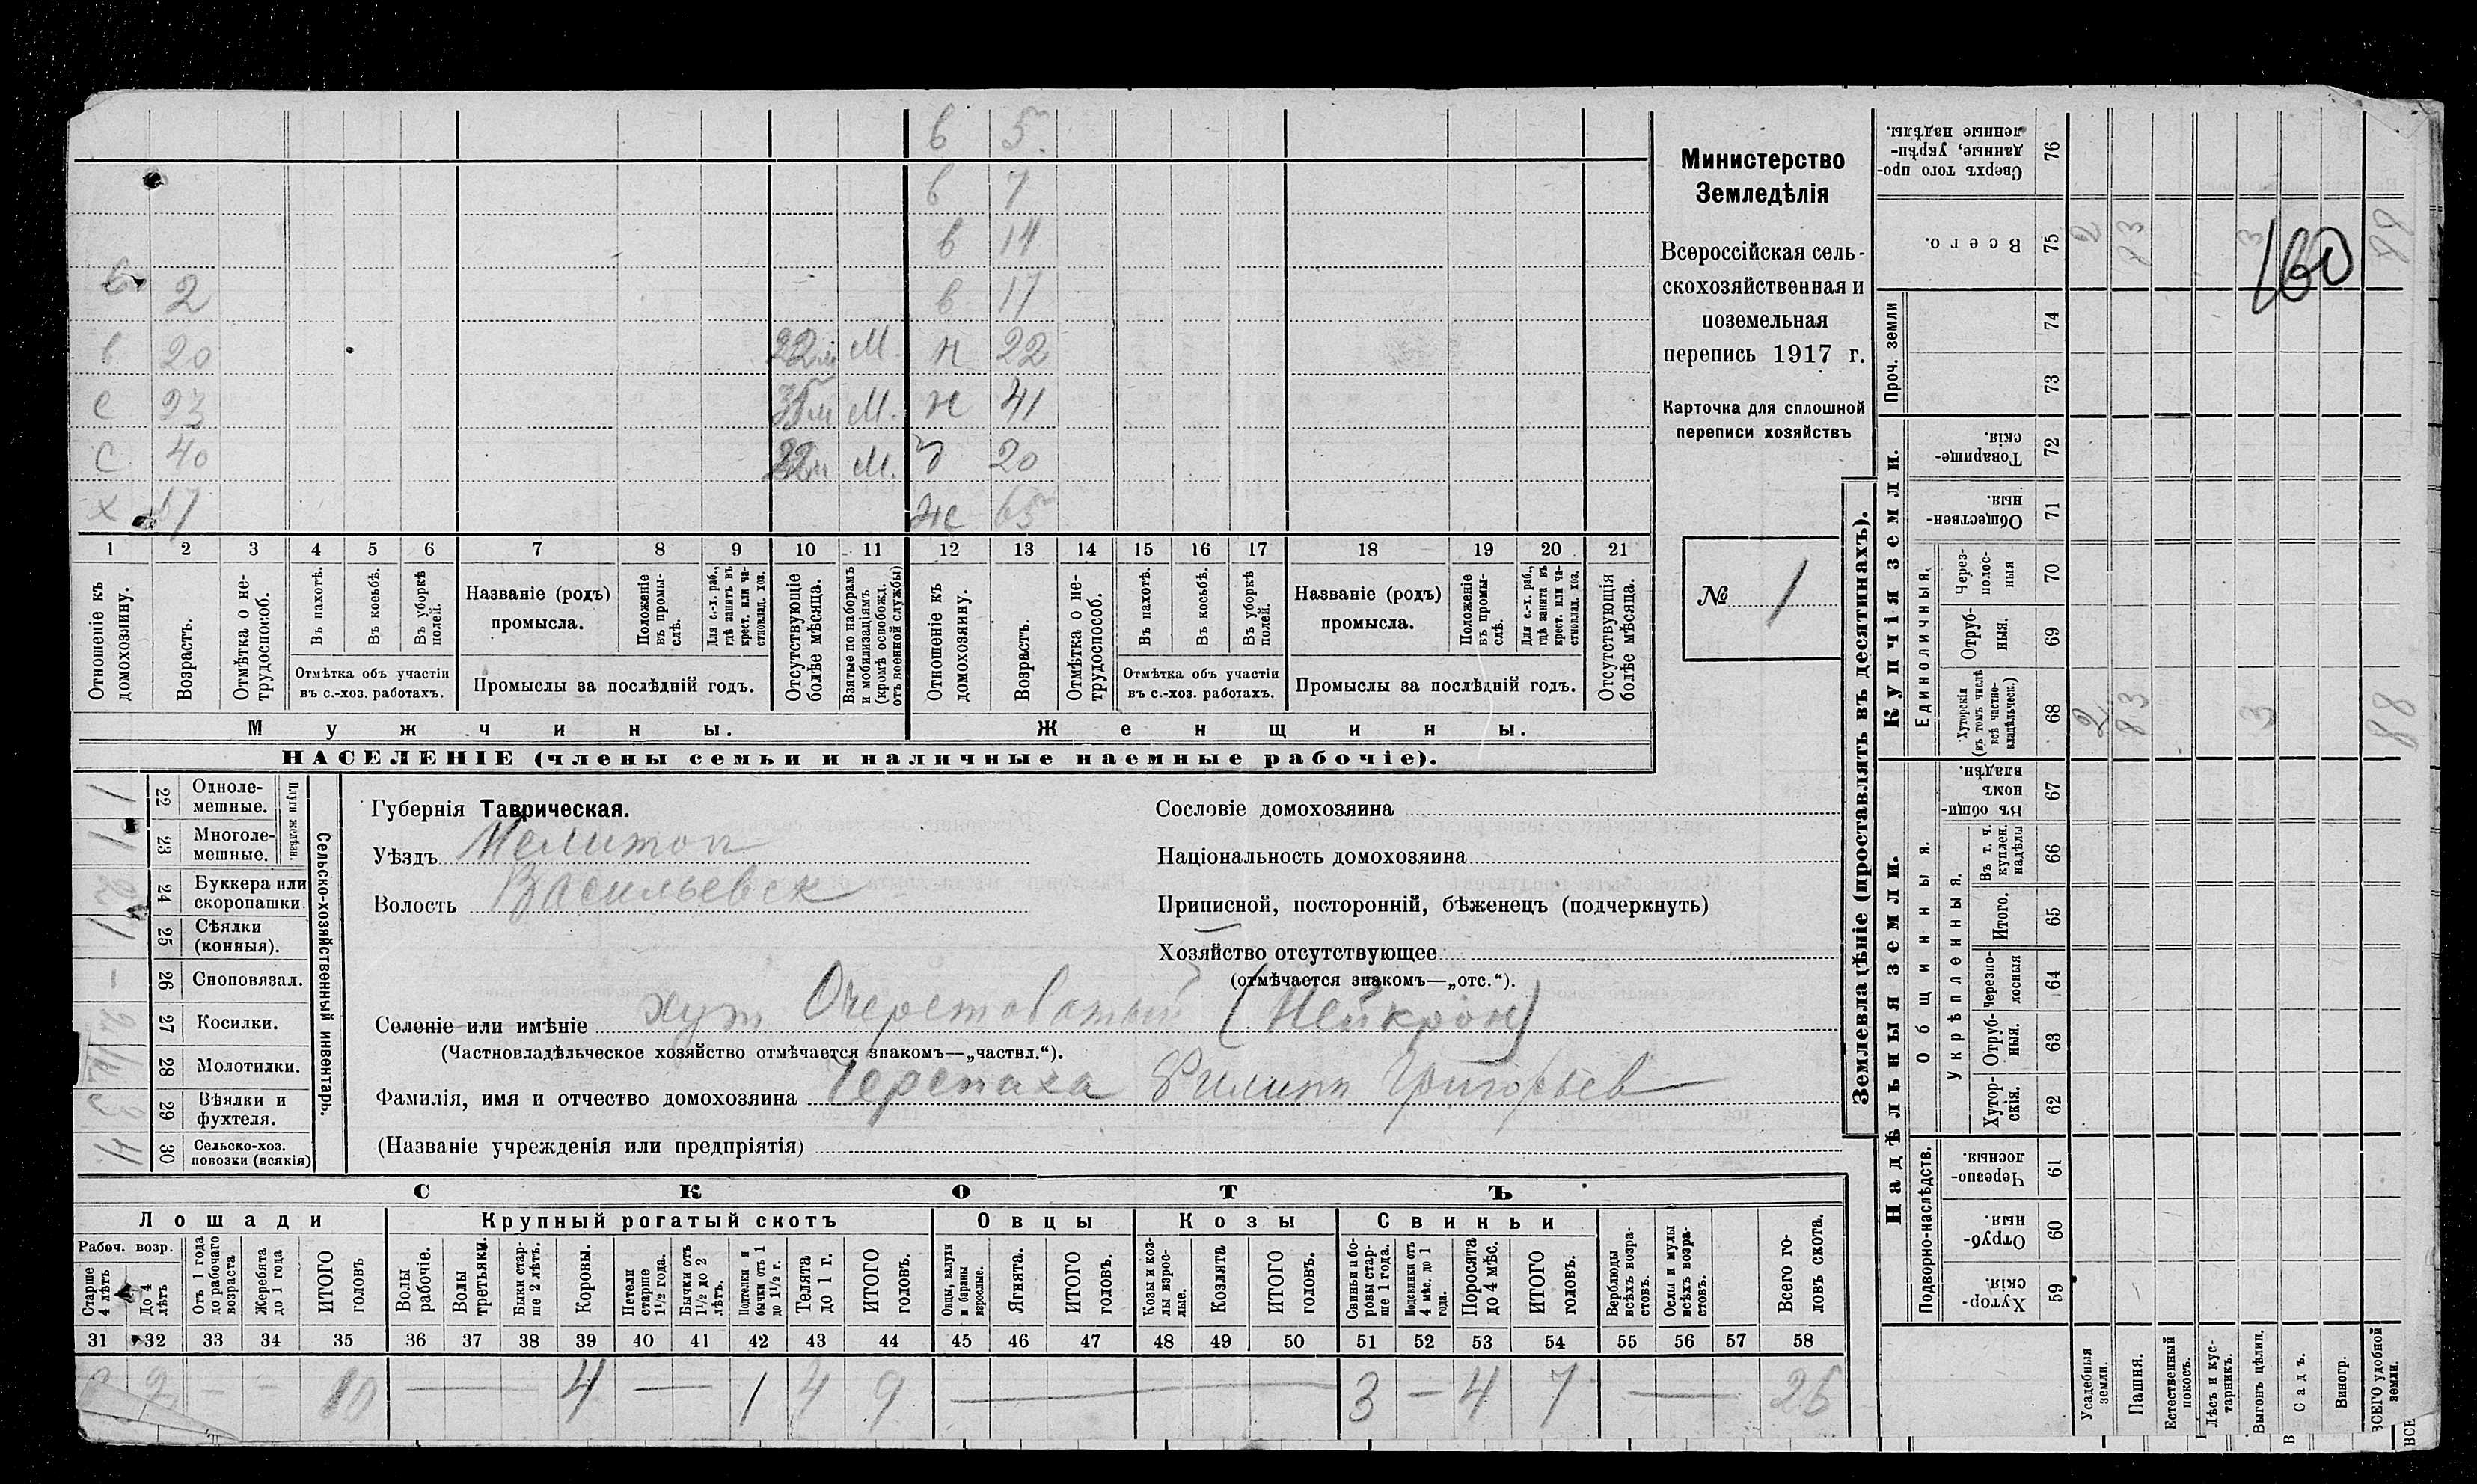 в 5
в 7
в 14
в 2 в 17
в 20 22м М. н 22
с 23 35м М. н 41
с 40 22м М. 20
х 67 ж 65
1 2 3 4 5 6 7 8 9 10 11 12 13 14 15 16 17 18 19 20 21
Отношеніе къ домохозяину.
Возрастъ.
Отмѣтка о не-трудоспособ.
Въ пахотѣ.
Въ косьбѣ.
Въ уборкѣ полей.
Отмѣтка объ участіи въ с.-хоз. работахъ.
Названіе (родъ) промысла.
Положеніе въ промы-слѣ.
Для с.-х. раб., гдѣ занятъ въ крест. или ча-стновлад. хоз.
Промыслы за послѣдній годъ.
Отсутствующіе болѣе мѣсяца.
Взятые по наборамъ и мобилизаціямъ (кромѣ освобожд. отъ военной службы)
Отношеніе къ домохозяину.
Возрастъ.
Отмѣтка о не-трудоспособ.
Въ пахотѣ.
Въ косьбѣ.
Въ уборкѣ полей.
Отмѣтка объ участіи въ с.-хоз. работахъ.
Названіе (родъ) промысла.
Положеніе въ промы-слѣ.
Для с.-х. раб., гдѣ занята въ крест. или ча-стновлад. хоз.
Промыслы за послѣдній годъ.
Отсутствующія болѣе мѣсяца.
Мужчины. Женщины.
НАСЕЛЕНІЕ (члены семьи и наличные наемные рабочіе).
Министерство
Земледѣлія
Всероссійская сель-
скохозяйственная и
поземельная
перепись 1917 г.
Карточка для сплошной
переписи хозяйствъ
№ 1
Сельско-хозяйственный инвентарь.
Плуги желѣзн.
1 22 Одноле-мешные.
1 23 Многоле-мешные.
24 Буккера или скоропашки.
1 25 Сѣялки (конныя).
- 26 Сноповязал.
2 27 Косилки.
28 Молотилки.
3 29 Вѣялки и фухтеля.
4 30 Сельско-хоз. повозки (всякія)
Губернія Таврическая.
Уѣздъ Мелитоп
Волость Васильевск
Сословіе домохозяина
Національность домохозяина
Приписной, посторонній, бѣженецъ (подчеркнуть)
Хозяйство отсутствующее
(отмѣчается знакомъ—„отс.“).
Селеніе или имѣніе хут Очеретоватый (Нейкрон)
(Частновладѣльческое хозяйство отмѣчается знакомъ—„частвл.“).
Фамилія, имя и отчество домохозяина Черепаха Филипп Григорьев
(Названіе учрежденія или предпріятія)
СКОТЪ
Лошади Крупный рогатый скотъ Овцы Козы Свиньи
Рабоч. возр.
Старше 4 лѣтъ
До 4 лѣтъ
Отъ 1 года до рабочаго возраста
Жеребята до 1 года
ИТОГО головъ
Волы рабочіе.
Волы третьяки.
Быки стар-ше 2 лѣтъ.
Коровы.
Нетели старше 1½ года.
Бычки отъ 1½ до 2 лѣтъ.
Подтелки и бычки отъ 1 до 1½ г.
Телята до 1 г.
ИТОГО головъ.
Овцы, валухи и бараны взрослые.
Ягнята.
ИТОГО головъ.
Козы и коз-лы взрос-лые.
Козлята
ИТОГО головъ.
Свиньи и бо-ровы стар-ше 1 года.
Подсвинки отъ 4 мѣс. до 1 года.
Поросята до 4 мѣс.
ИТОГО головъ.
Верблюды всѣхъ возра-стовъ.
Ослы и мулы всѣхъ возра-стовъ.
Всего го-ловъ скота.
31 32 33 34 35 36 37 38 39 40 41 42 43 44 45 46 47 48 49 50 51 52 53 54 55 56 57 58
8 2 - - 10 — 4 — 1 4 9 — 3 - 4 7 — 26
Землевладѣніе (проставлять въ десятинахъ).
Надѣльныя земли. Купчія земли. Проч. земли
Подворно-наслѣдств.
Общинныя.
Укрѣпленныя.
Единоличныя.
Хутор-скія. 59
Отруб-ныя. 60
Черезпо-лосныя. 61
Хутор-скія. 62
Отруб-ныя. 63
Черезпо-лосныя 64
Итого. 65
Въ т. ч. куплен. надѣлы 66
Въ общи-номъ владѣн. 67
Хуторскія (въ томъ числѣ всѣ частно-владѣльческ.) 68 2 83 3 88
Отруб-ныя. 69
Через-полос-ныя 70
Обществен-ныя. 71
Товарище-скія. 72
73
74
Всего. 75 2 83 3 88
160
Сверхъ того про-данные, укрѣп-ленные надѣлы. 76
Усадебныя земли.
Пашня.
Естественный покосъ.
Лѣсъ и кус-тарникъ.
Выгонъ цѣлин.
Садъ.
Виногр.
ВСЕГО удобной земли.